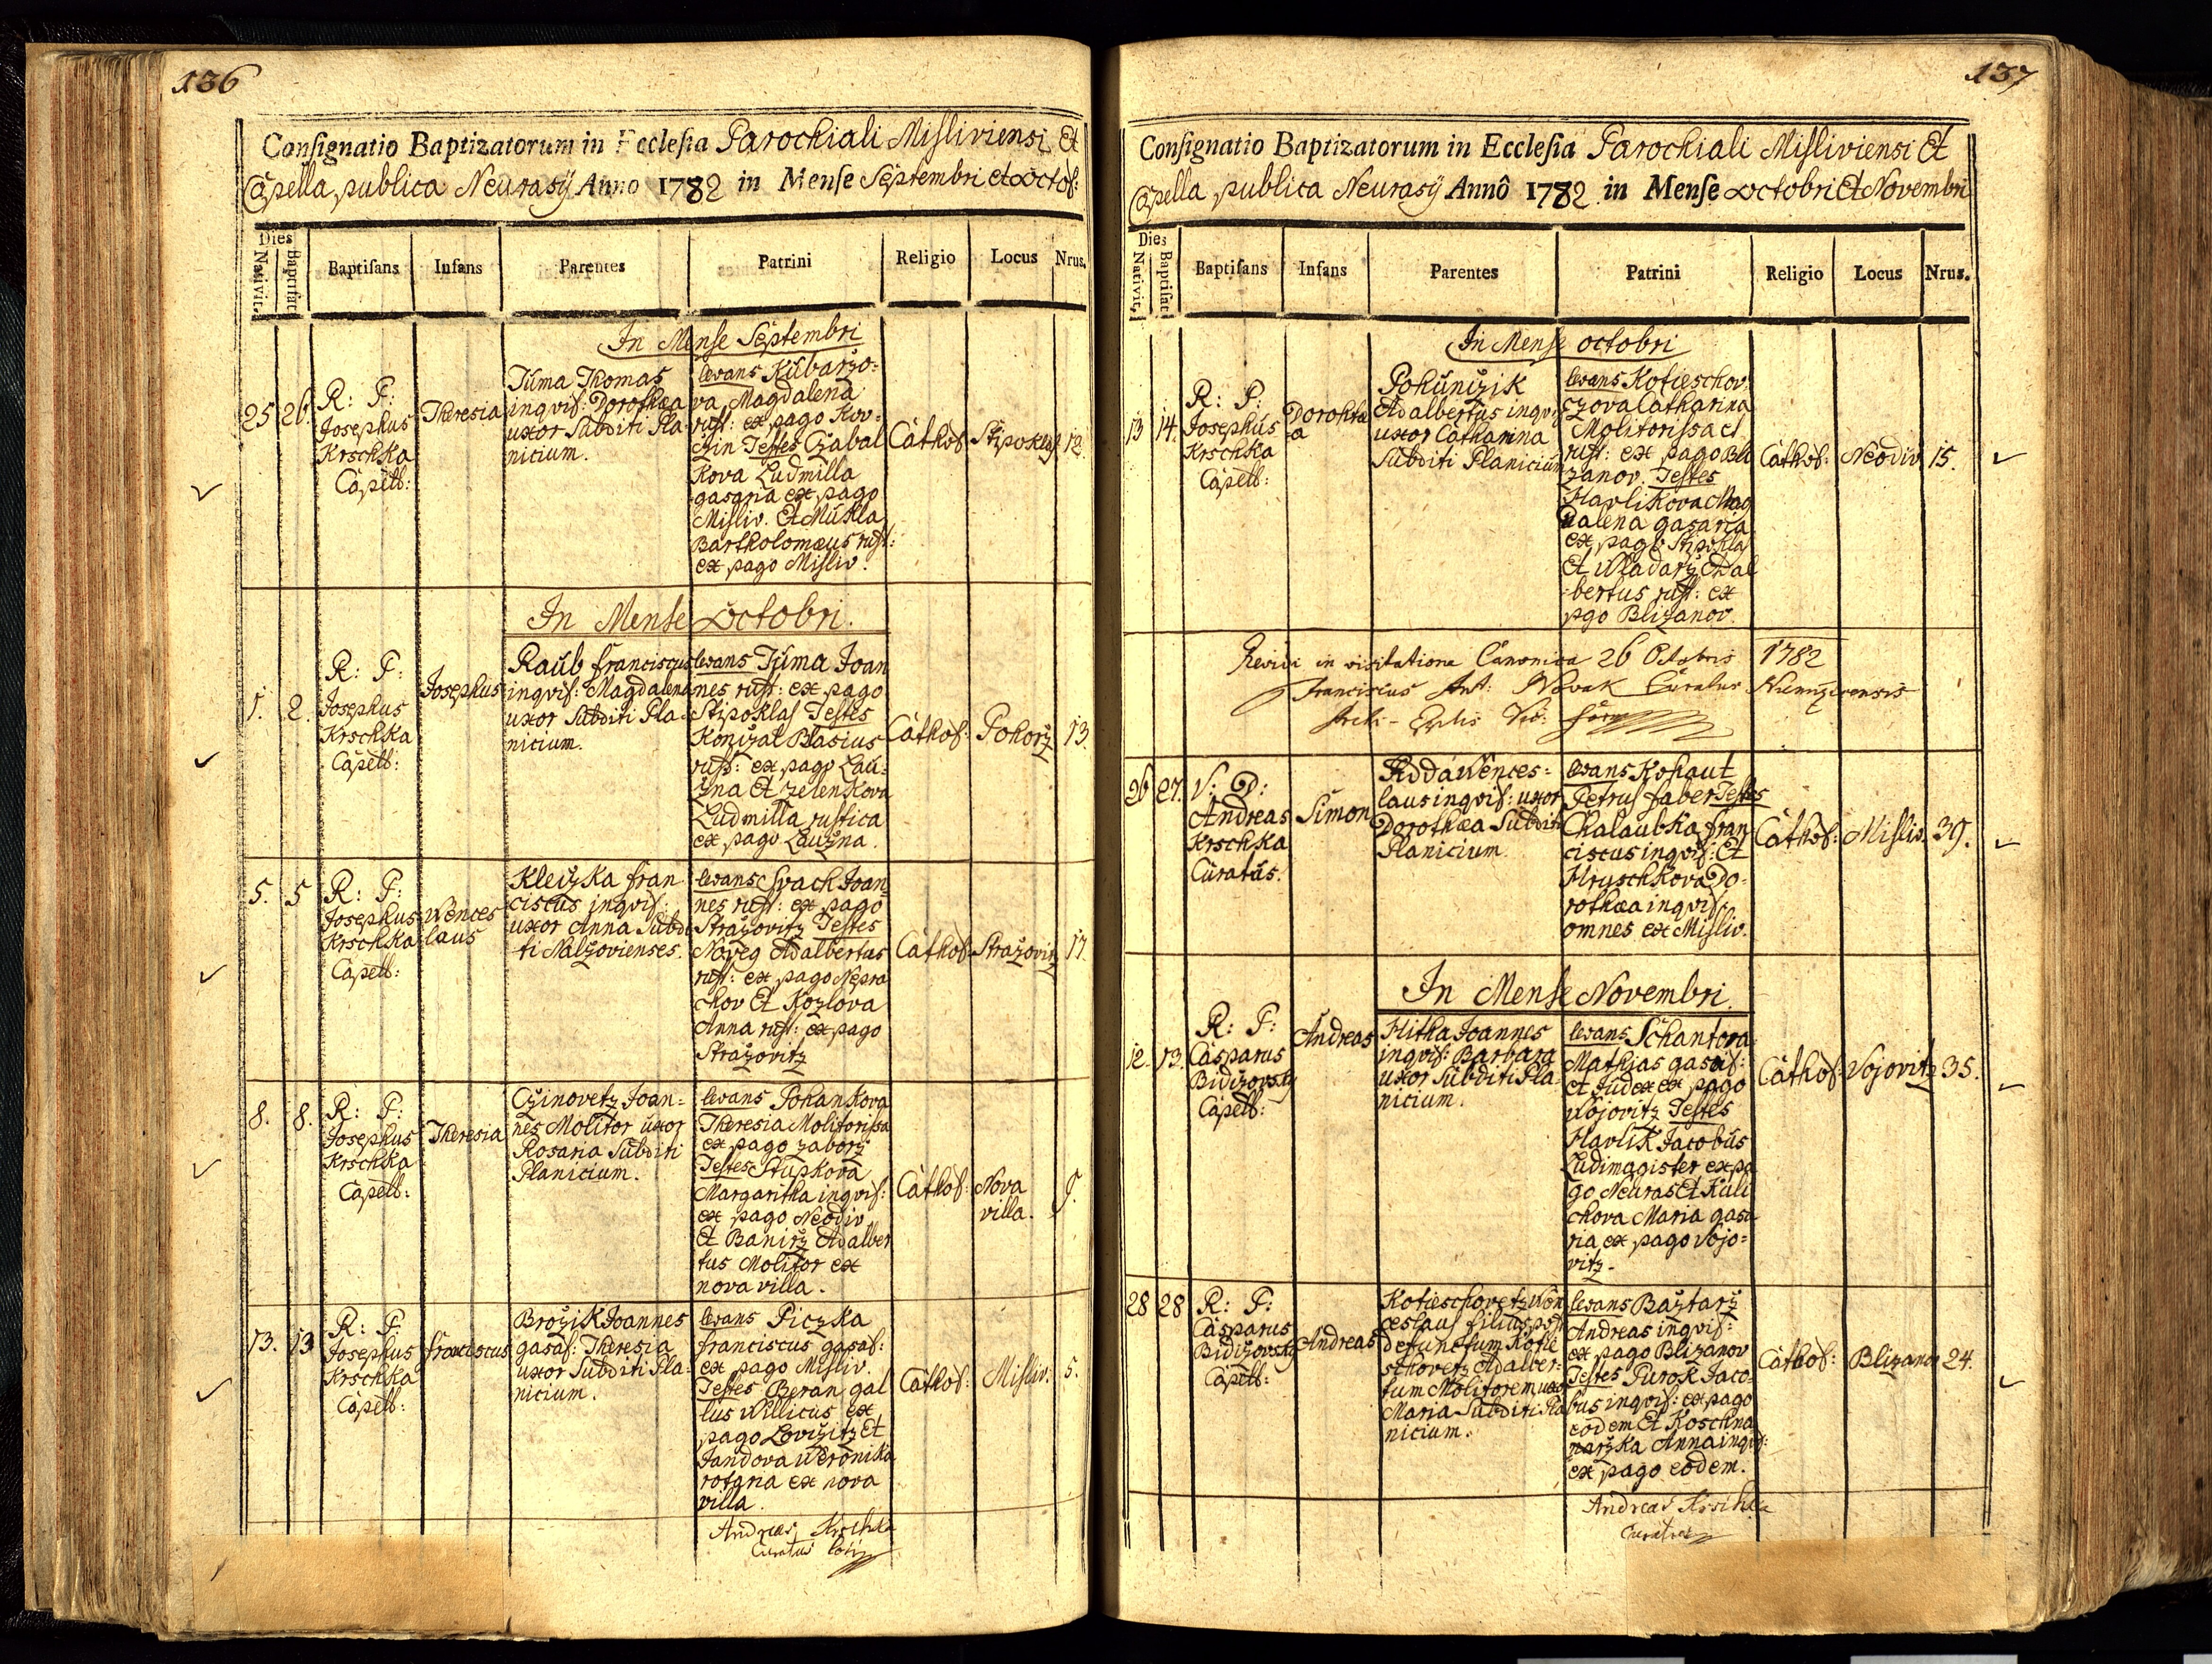 136
Consignatio Baptizatorum in Ecclesia Parochiali Misliviensi Et
Capella publica Neurasÿ Anno 1782 in Mense Septembri et octob:
Dies
Nativit.
Baptisat.
Baptisans
Infans
Parentes
Patrini
Religio
Locus
Nrus.
In Mense Septembri
25
26.
R: P:
Josephus
Krschka
Capell:
Theresia
Tůma Thomas
inqvil: Dorothæa
uxor Subditi Pla-
nicium.
levans Kubarzo-
va Magdalena
rust: ex pago Kov-
czin Testes Czabal
kova Ludmilla
gasaria ex pago
Misliv. Et Mukla
Bartholomæus rust:
ex pago Misliv.
Cathol:
Stipoklas
12.
In Mense Octobri.
1.
2.
R: P:
Josephus
Krschka
Capell:
Josephus
Raub franciscus
inqvil: Magdalena
uxor Subditi Pla-
nicium.
levans Tůma Joan
nes rust: ex pago
Stipoklas Testes
Konizal Blasius
rust: ex pago Lau-
zna Et zelenkova
Ludmilla rustica
ex pago Lauzna.
Cathol:
Pohorz
13.
5.
5
R: P:
Josephus
Krschka
Capell:
Wences
laus
Kleizka fran
ciscus inqvil:
uxor Anna Subdi
ti Nalzovienses.
levans Svach Joan-
nes rust: ex pago
Strazovitz Testes
Noveg Adalbertus
rust: ex pago Nepra
chov Et Kozlova
Anna rust: ex pago
Strazovitz
Cathol:
Strazovitz
17.
8.
8.
R: P:
Josephus
Krschka
Capell:
Theresia
Czinovetz Joan-
nes Molitor uxor
Rosaria Subditi
Planicium.
levans Pohankova
Theresia Molitorissa
ex pago zaborz
Testes Stupkova
Margaritha inqvil:
ex pago Neodiv
Et Banirz Adalber
tus Molitor ex
nova villa.
Cathol:
Nova
villa.
13.
13
R: P.
Josephus
Krschka
Capell:
franciscus
Brozik Joannes
gasas: Theresia
uxor Subditi Pla-
nicium.
levans Piczka
franciscus gasas:
ex pago Misliv.
Testes Beran gal
lus Willicus ex
pago Lovizitz Et
Jandova Weronika
ex nova
villa.
Cathol:
Misliv:
5.
Andreas Krschka
Curatus loci
137
Consignatio Baptizatorum in Ecclesia Parochiali Misliviensi Et
Capella publica Neurasÿ Annô 1782 in Mense octobri Et Novembri
Dies
Nativit.
Baptisat.
Baptisans
Infans
Parentes
Patrini
Religio
Locus
Nrus.
In Mense octobri
13
14.
R: P:
Josephus
Krschka
Capell:
Dorothæ
a
Pohunizik
Adalbertus inqvil
uxor Catharina
Subditi Planicium
levans Kotieschov
czova Catharina
Molitorissa et
rust: ex pago Bli
zanov. Testes
Havlikova Mag
dalena gasaria
ex pago Stipoklas
Et Wladarz Adal
bertus rust: ex
pgo Blizanov.
Cathol:
Neodiv
15.
Revidi in visitatione Canonica 26 Octobris 1782
Franciscus Ant: Novak Curatus
26
27.
V: D:
Andreas
Krschka
Curatus.
Simon
Adda Wences-
laus inqvil: uxor
Dorothæa Subditi
Planicium.
levans Kohaut
Petrus faber Testes
Chalaubka fran
ciscus inqvil: Et
Hruschkova Do-
rothæa inqvil:
omnes ex Misliv.
Cathol:
Misliv.
39.
In Mense Novembri.
12.
13.
R: P:
Casparus
Bidizovsky
Capell:
Andreas
Hitha Joannes
inqvil: Barbara
uxor Subditi Pla-
nicium.
levans Schantora
Mathias gasas:
Et Judex ex pago
Vojovitz Testes
Havlik Jacobus
Ludimagister ex pa
go Neuras Et Kuli
chova Maria gasa
ria ex pago Vojo-
vitz.
Cathol:
Vojovitz
35.
28
28
R: P:
Casparus
Bidizovsky
Capell:
Andreas
Kotieschovetz Wen
ceslaus filius post
defunctum Kotie
schovetz Adalber-
tum Molitorem uxor
Maria Subditi Pla
nicium.
levans Baztarz
Andreas inqvil:
ex pago Blizanov
Testes Purok Jaco-
bus inqvil: ex pago
eodem Et Koschna
rarzka Anna inqvil:
ex pago eodem.
Cathol:
Blizanov
24.
Andreas Krschka
Curatus